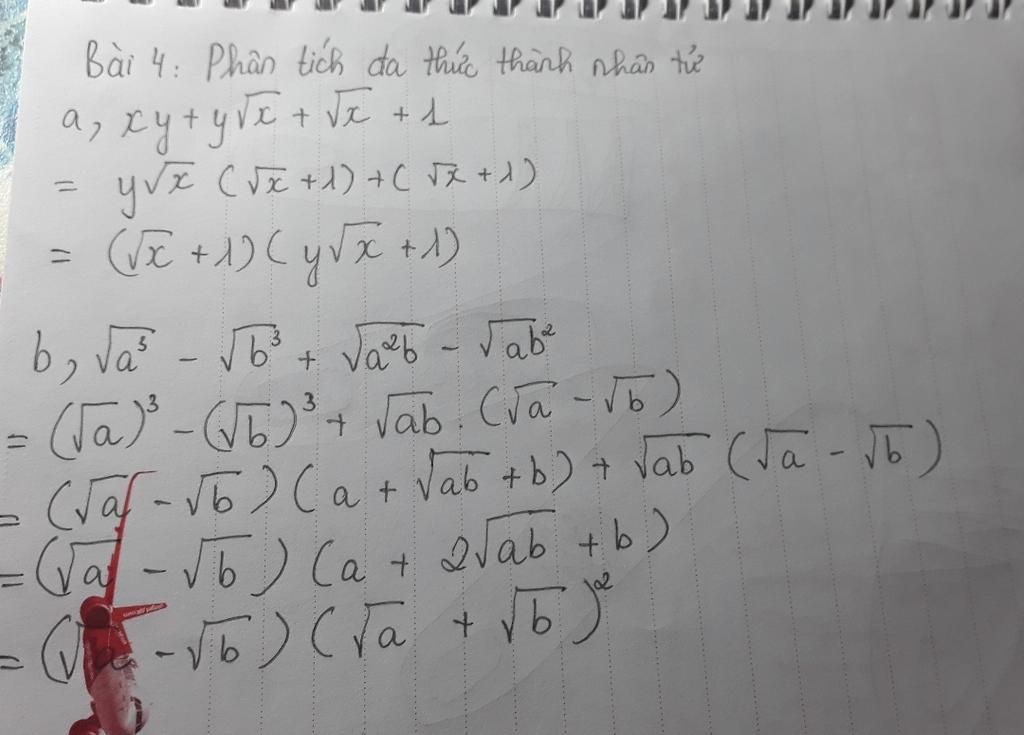 Bài 4: Phân tích đa thức thành nhân tử
a, xy + y√x + √x + 1
= y√x (√x + 1) + (√x + 1)
= (√x + 1)(y√x + 1)
b, √a³ - √b³ + √a²b - √ab²
= (√a)³ - (√b)³ + √ab . (√a - √b)
= (√a - √b)(a + √ab + b) + √ab (√a - √b)
= (√a - √b)(a + 2√ab + b)
= (√a - √b)(√a + √b)²